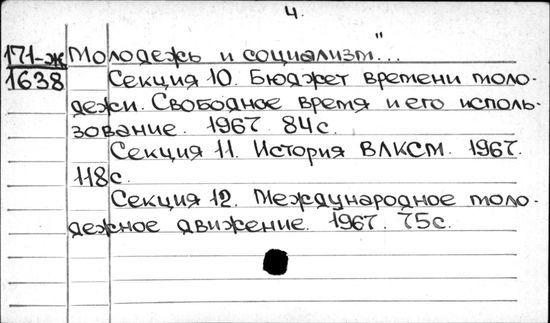 4.
171-ж Молодежь и социализм"...
1638 Секция 10. Бюджет времени моло-
дежи. Свободное время и его исполь-
зование. 1967. 84с.
Секция 11. История ВЛКСМ. 1967.
118с.
Секция 12. Международное моло-
дежное движение. 1967. 75с.